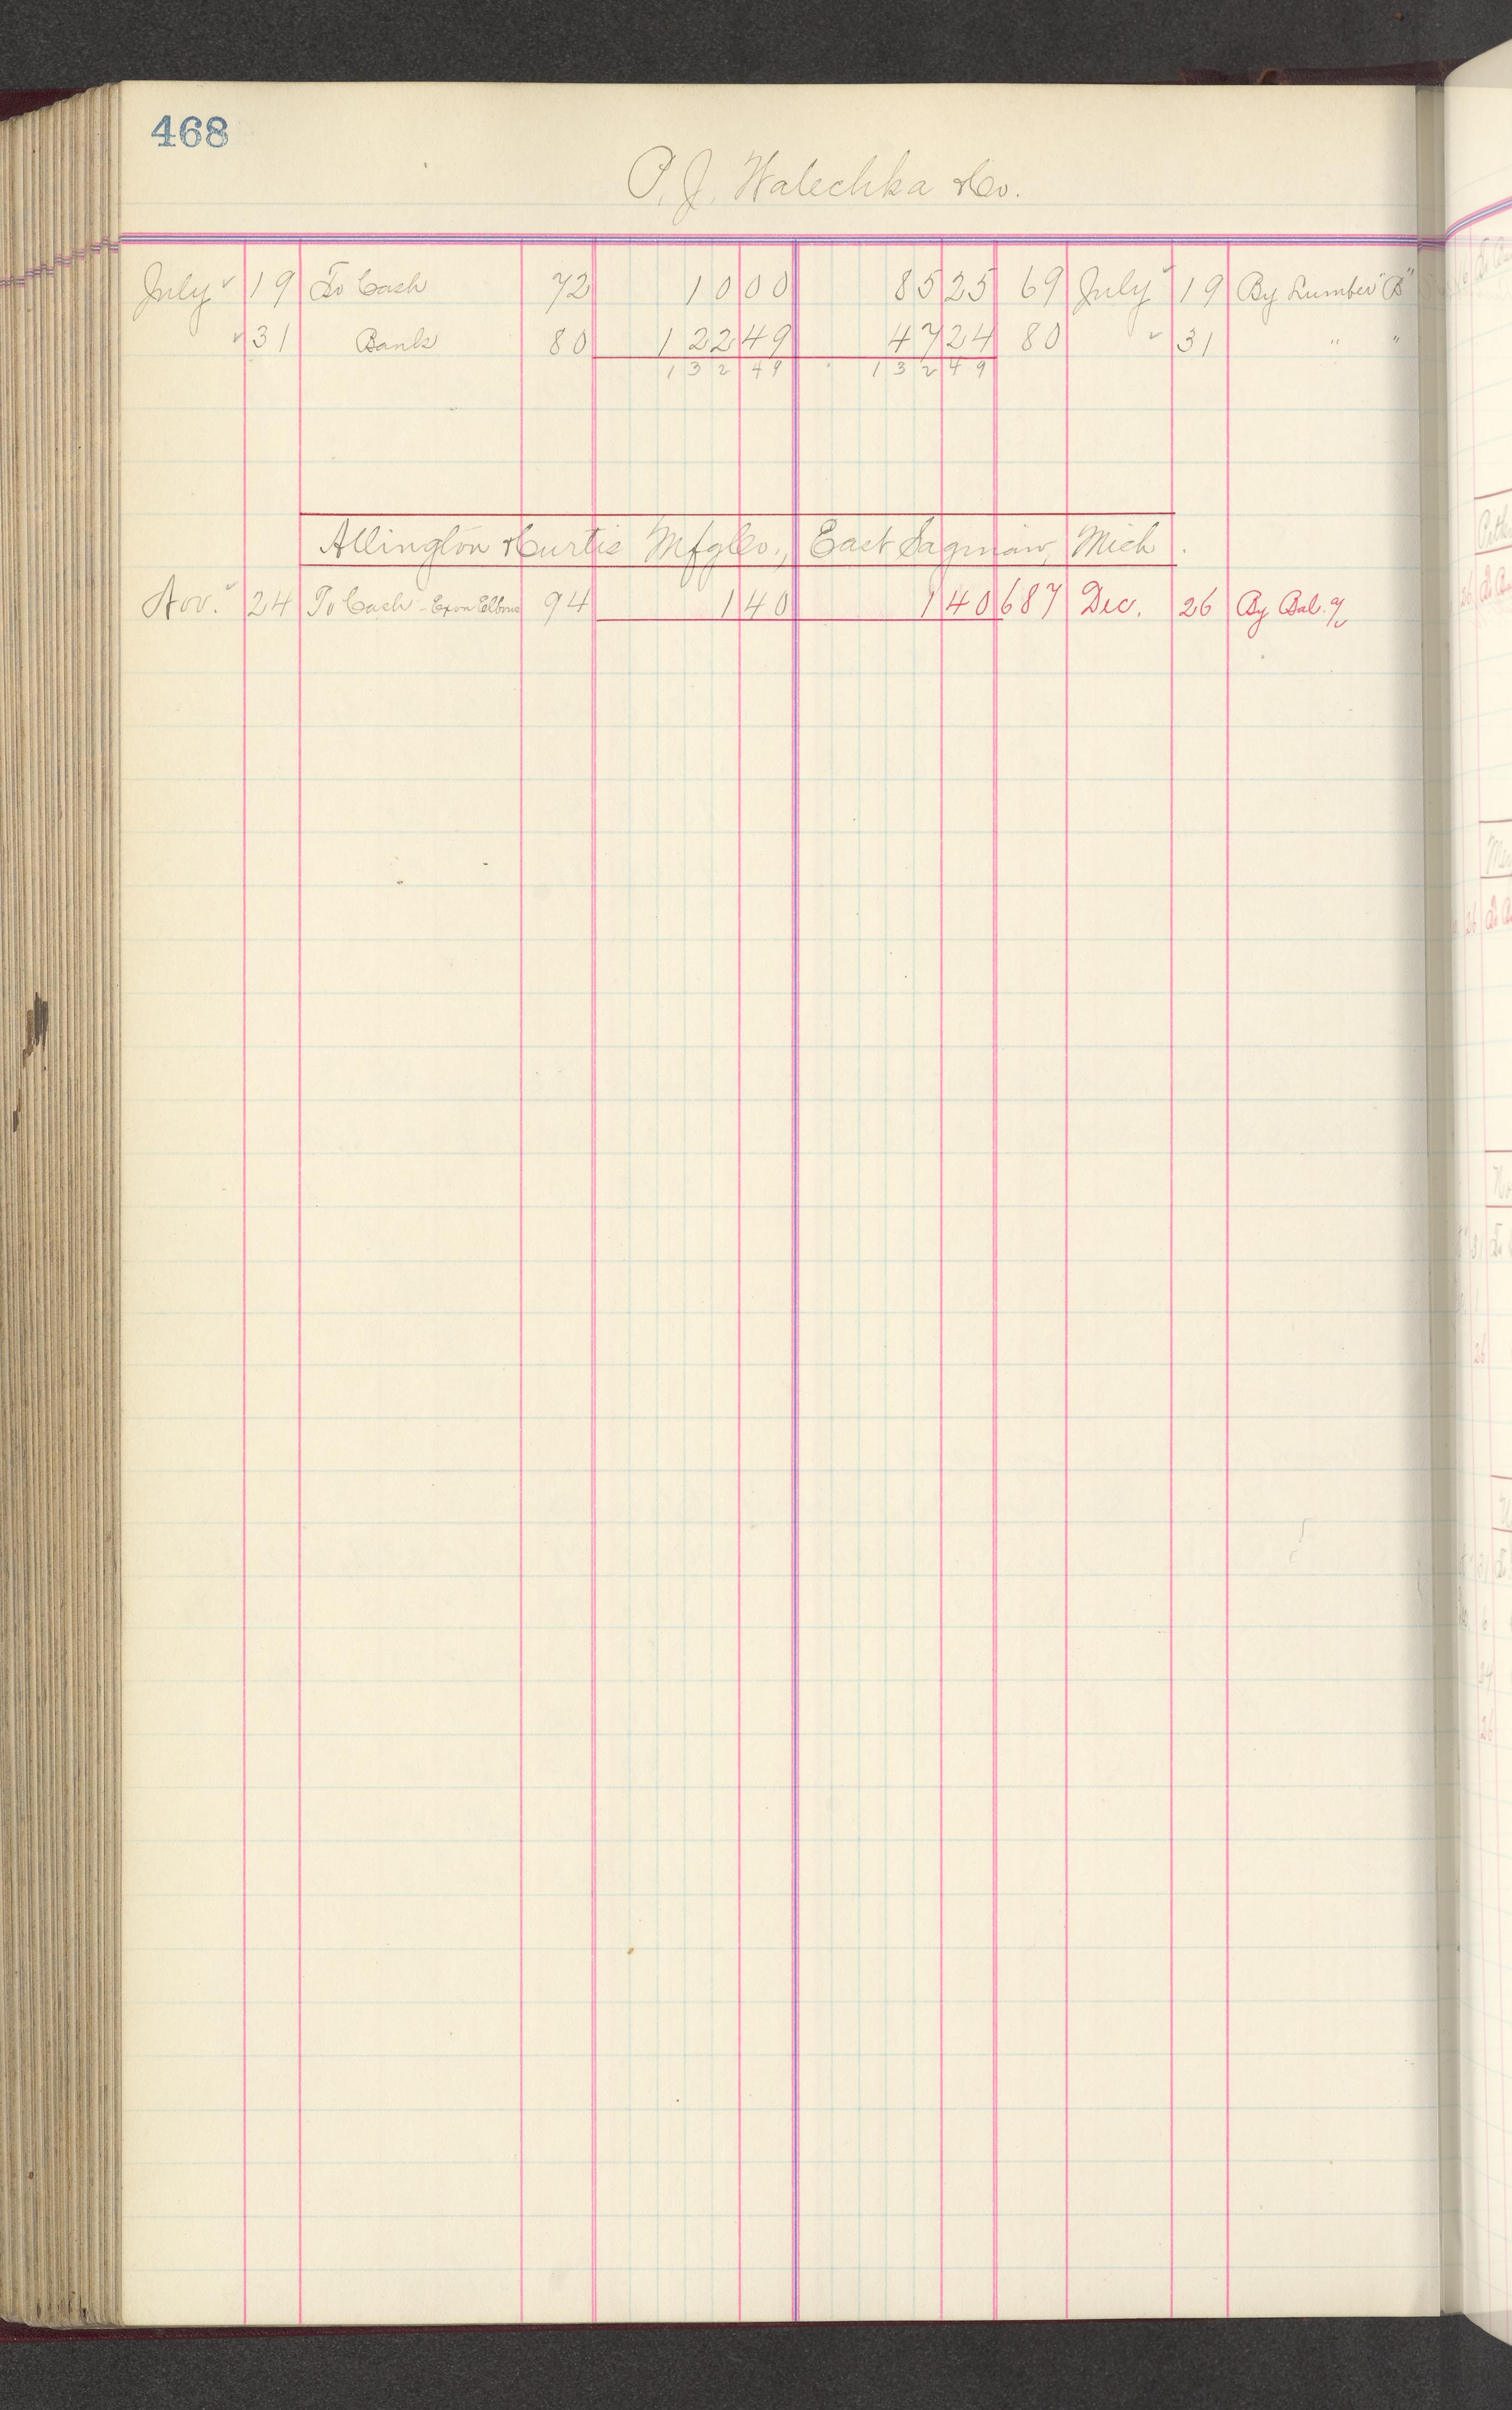 468
P. J. Walechka & Co.
July 19 To Cash 72 10 00 85 25 69 July 19 By Lumber "B"
31 Bank 80 122 49 47 24 80 31 " "
132 49 132 49
Allington & Curtis Mfg Co., East Saginaw, Mich.
Nov. 24 To Cash - Ex on Elbows 94 1 40 1 40 687 Dec. 26 By Bal. %